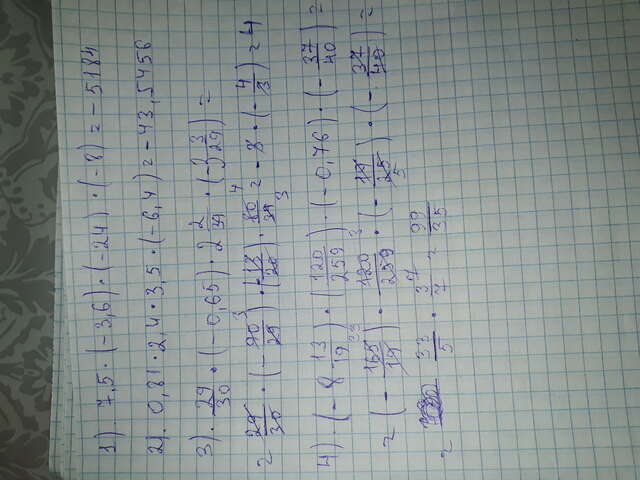 1). 7,5 · (-3,6) · (-24) · (-8) = -5184
2). 0,81 · 2,4 · 3,5 · (-6,4) = -43,5456
3). 29/30 · (-0,65) · 2 2/39 · (-3 3/29) =
= 29/30 · (-90/29) · (-13/20) · 80/39 = -3 · (-4/3) = 4
4) · (-8 13/19) · (120/259) · (-0,76) · (-37/40) =
= (-165/19) · 120/259 · (-19/25) · (-37/40) =
= 33/5 · 3/7 = 99/35